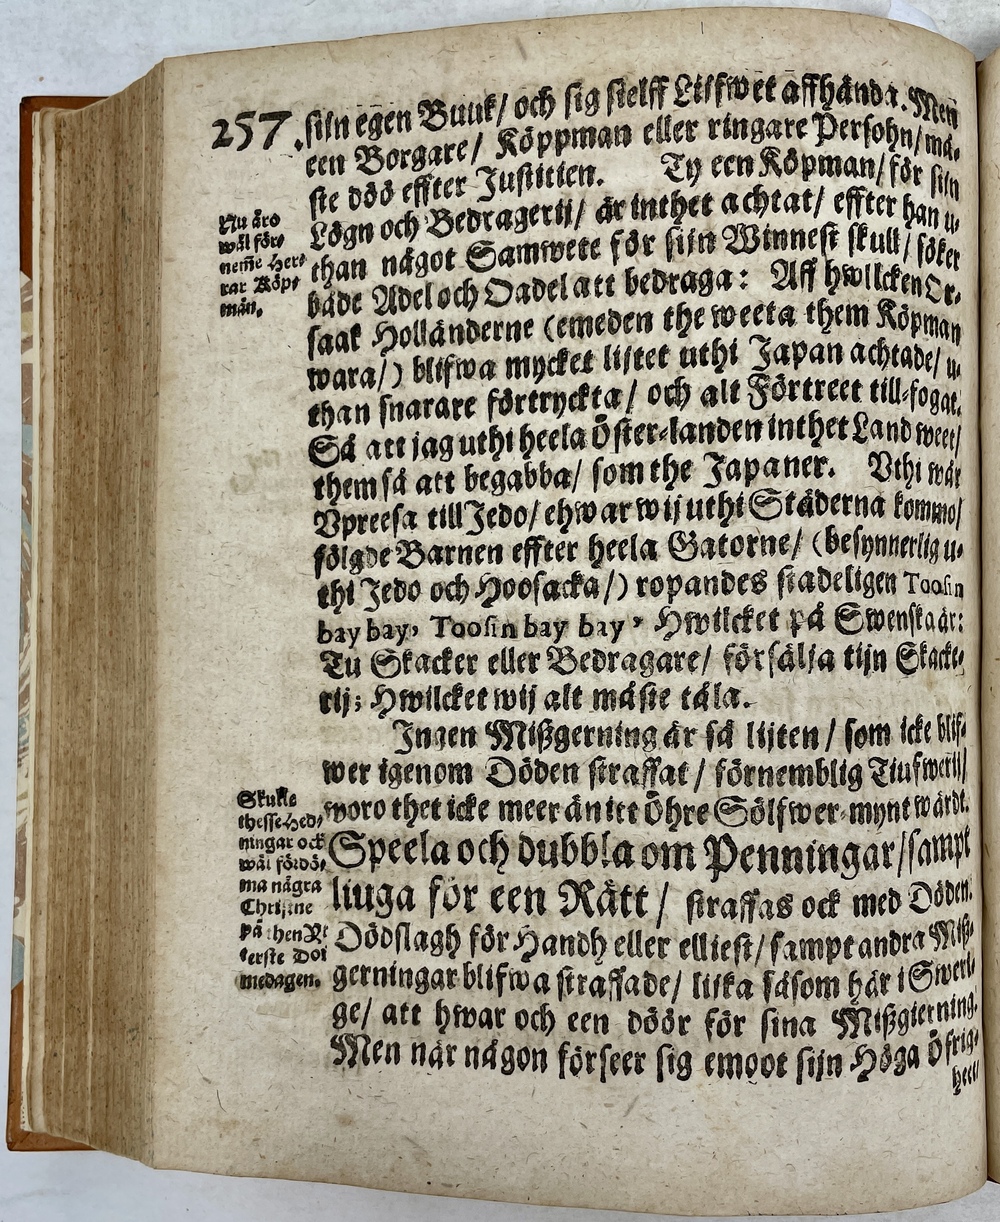 257.
sijn egen Buuk/ och sig sielff Lijfwet affhända. Men
een Borgare/ Köppman eller ringare Persohn/ må-
ste döö effter Justitien. Ty een Köpman/ för sijn
Lögn och Bedragerij/ är inthet achtat/ effter han u-
than något Samwete för sijn Winnest skull/ söker
både Adel och Oadel att bedraga: Aff hwilcken Or-
saak Holländerne (emeden the weeta them Köpman
wara/) blifwa mycket lijtet uthi Japan achtade/ u-
than snarare förtryckta/ och alt Förtreet till-fogat.
Så att jag uthi heela Öster-landen inthet Land weet/
them så att begabba/ som the Japaner. Vthi wår
Vpreesa till Jedo/ ehwar wij uthi Städerna kommo/
fölgde Barnen effter heela Gatorne/ (besynnerlig u-
thi Jedo och Hoosacka/) ropandes stadeligen Toosin
bay bay, Toosin bay bay, Hwilcket på Swenska är:
Tu Skacker eller Bedragare/ försälja tijn Skacke-
rij; Hwilcket wij alt måste tåla.
Ingen Mißgerning är så lijten/ som icke blif-
wer igenom Döden straffat/ förnemblig Tiufwerij/
woro thet icke meer än itt Öhre Sölfwer-mynt wärdt.
Speela och dubbla om Penningar/ sampt
liuga för een Rätt/ straffas ock med Döden.
Dödslagh för Handh eller elliest/ sampt andra Miß-
gerningar blifwa straffade/ lijka såsom här i Sweri-
ge/ att hwar och een döör för sina Mißgierning.
Men när någon förseer sig emoot sijn Höga Öfrig-
heet/
Nu äro
wäl för-
neme Her-
rar Köp-
män.
Skulle
thesse Hed-
ningar ock
wäl fördö-
ma några
Christne
på then Yt
terste Do
medagen.